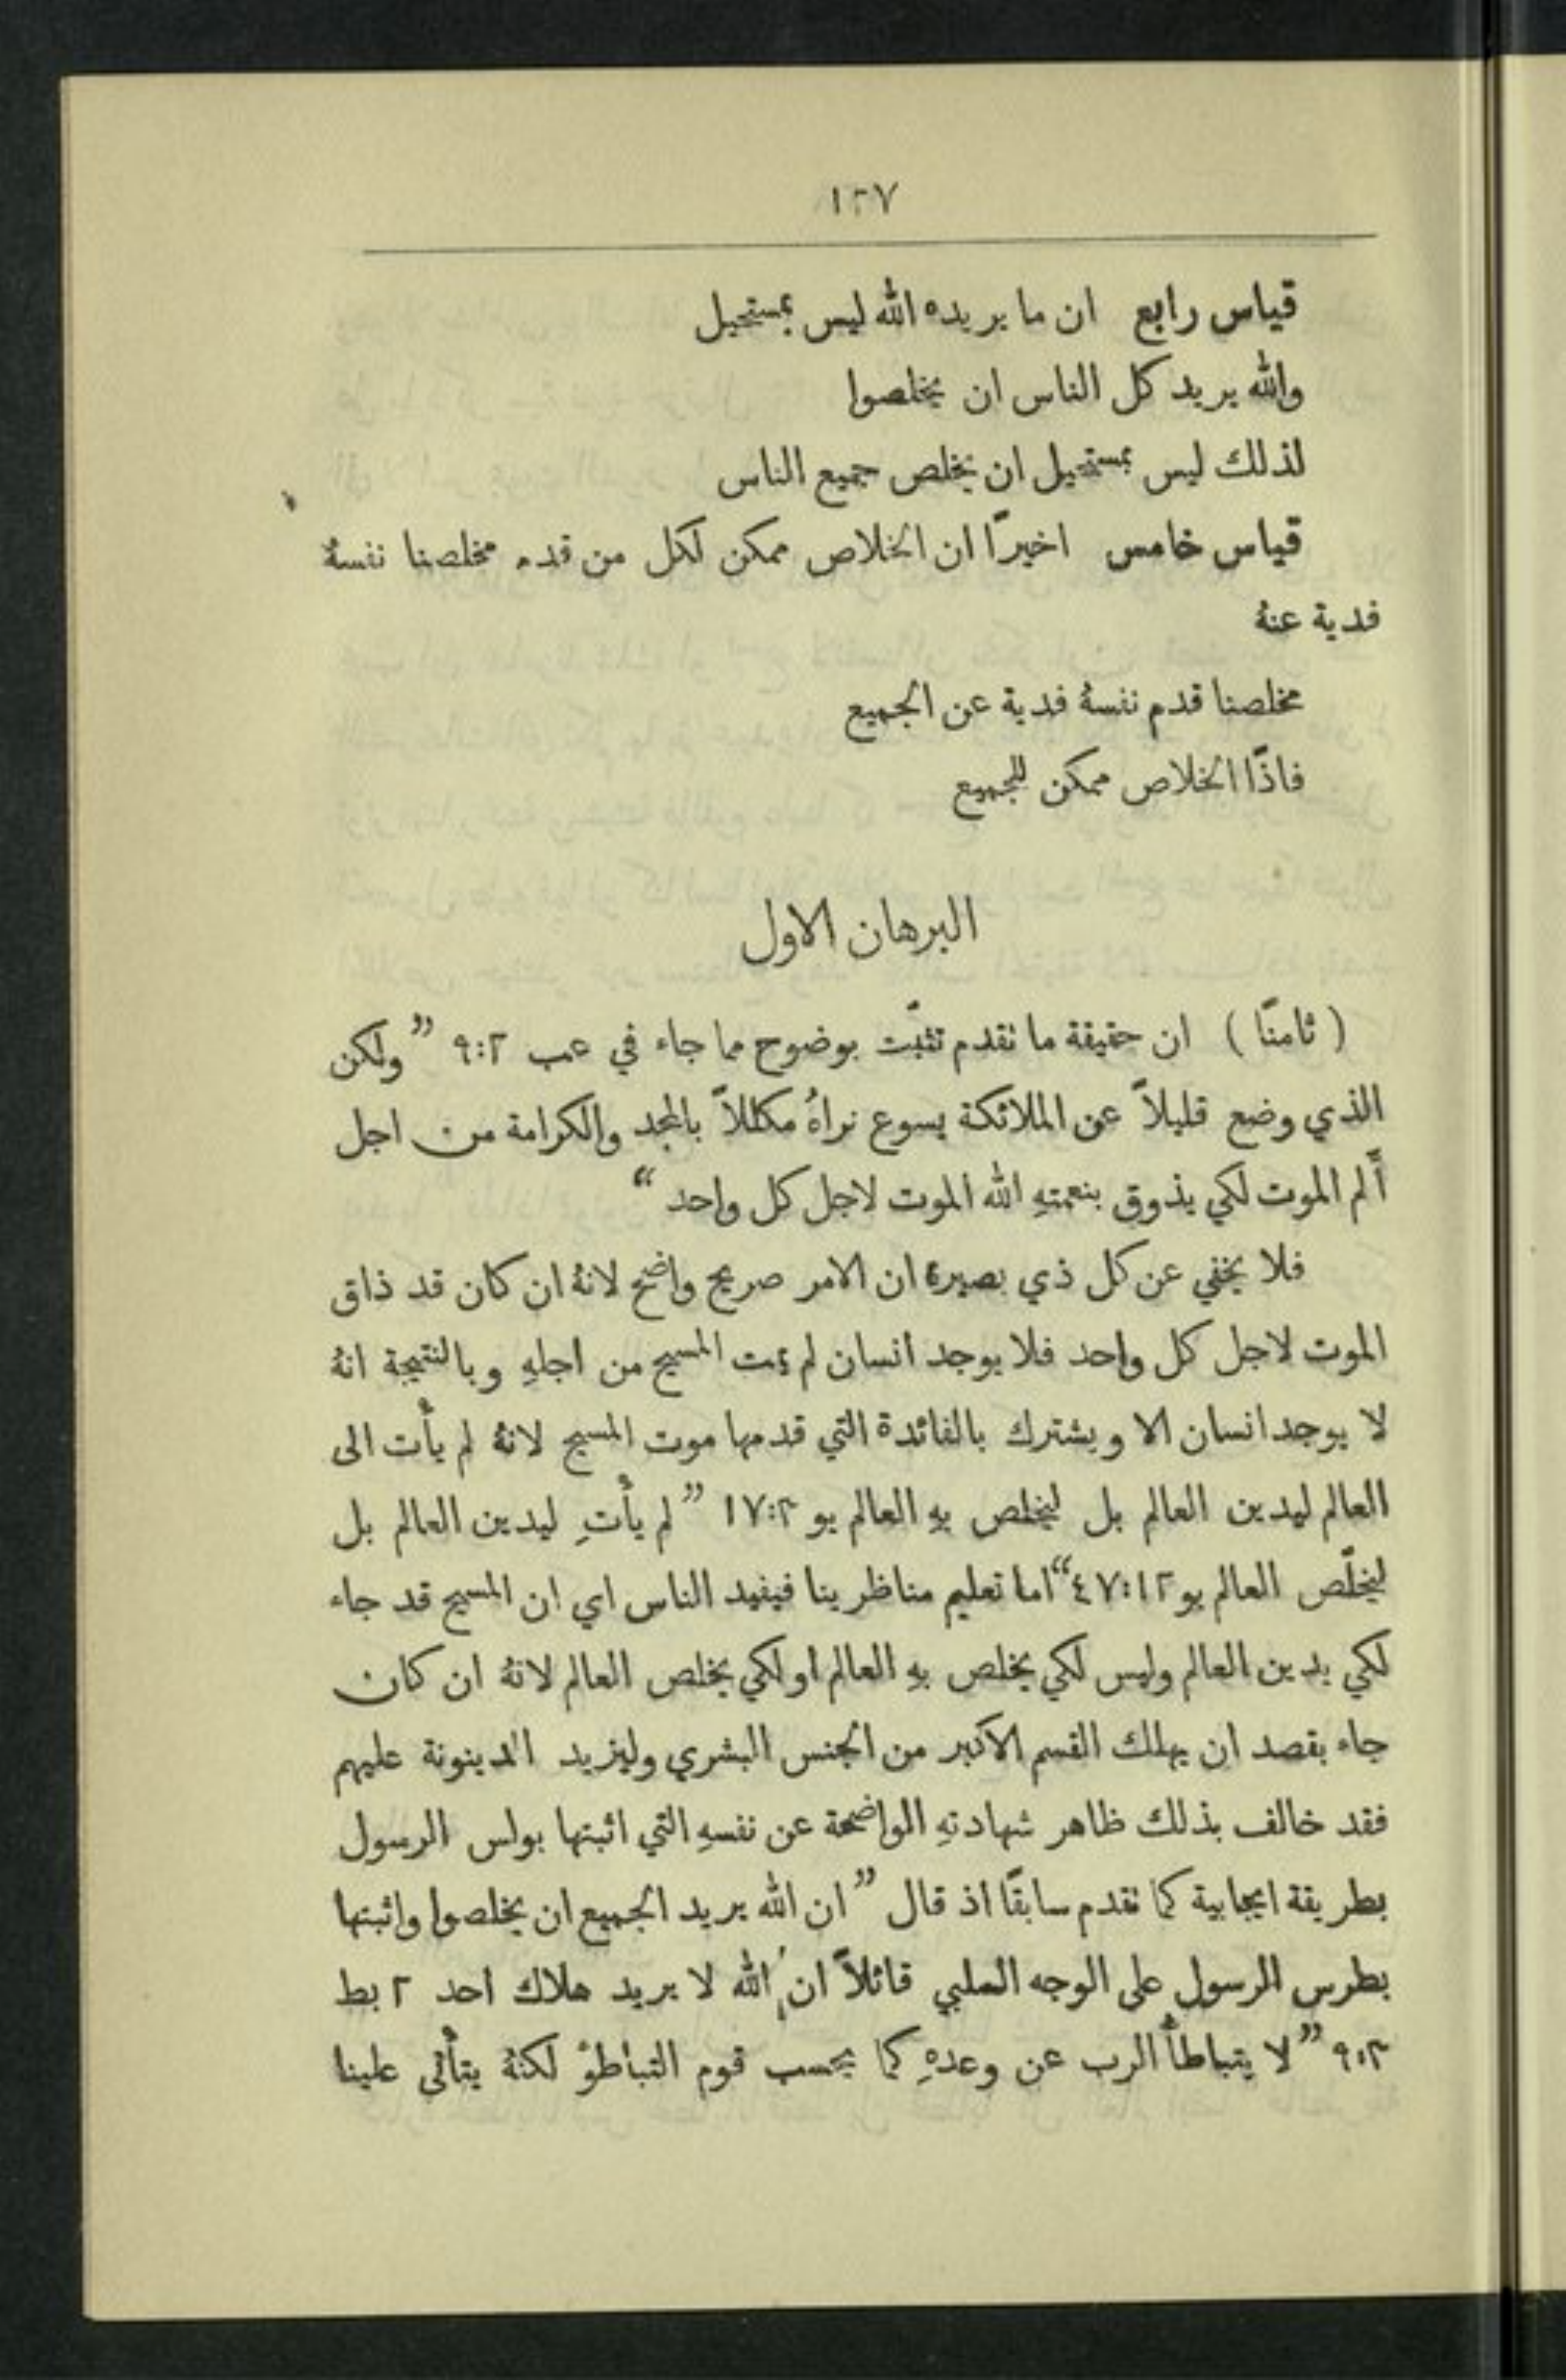 ١٢٧
قياس رابع ان ما يريده الله ليس بمستحيل
والله يريد كل الناس ان يخلصوا
لذلك ليس بمستحيل ان يخلص جميع الناس
قياس خامس اخيرًا ان الخلاص ممكن لكل من قدم مخلصنا نفسهُ
فدية عنهُ
مخلصنا قدم نفسهُ فدية عن الجميع
فاذًا الخلاص ممكن للجميع
البرهان الاول
( ثامنًا ) ان حقيقة ما تقدم تثبّت بوضوح مما جاء في عب ٩:٢ ” ولكن
الذي وضع قليلاً عن الملائكة يسوع نراهُ مكللاً بالمجد والكرامة من اجل
أَلم الموت لكي يذوق بنعمتهِ الله الموت لاجل كل واحد “
فلا يخفي عن كل ذي بصيرة ان الامر صريح واضح لانهُ ان كان قد ذاق
الموت لاجل كل واحد فلا يوجد انسان لم يمت المسيح من اجلهِ وبالنتيجة انهُ
لا يوجد انسان الا ويشترك بالفائدة التي قدمها موت المسيح لانهُ لم يأت الى
العالم ليدين العالم بل ليخلص بهِ العالم يو ١٧:٣ ” لم يأتِ ليدين العالم بل
ليخلّص العالم يو ٤٧:١٢“ اما تعليم مناظرينا فيفيد الناس اي ان المسيح قد جاء
لكي يدين العالم وليس لكي يخلص بهِ العالم او لكي يخلص العالم لانهُ ان كان
جاء بقصد ان يهلك القسم الاكبر من الجنس البشري وليزيد الدينونة عليهم
فقد خالف بذلك ظاهر شهادتهِ الواضحة عن نفسهِ التي اثبتها بولس الرسول
بطريقة ايجابية كما تقدم سابقًا اذ قال ” ان الله يريد الجميع ان يخلصوا واثبتها
بطرس الرسول على الوجه السلبي قائلاً ان الله لا يريد هلاك احد ٢ بط
٩:٣ ” لا يتباطأ الرب عن وعدهِ كما يحسب قوم التباطؤ لكنهُ يتأنى علينا